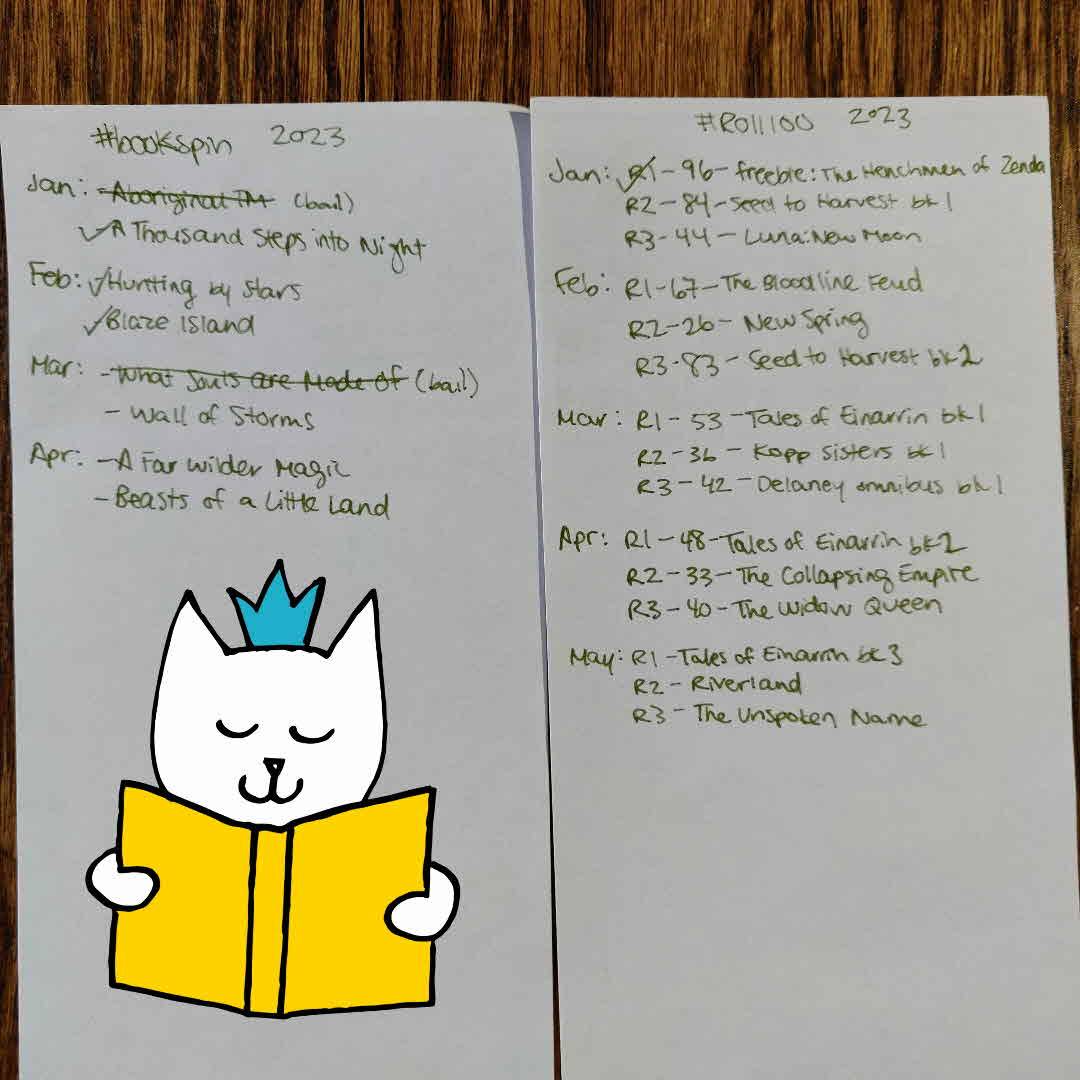 #bookspin 2023
Jan: -Aboriginal TM (bail)
✓A Thousand Steps into Night
Feb: ✓Hunting by Stars
✓Blaze Island
Mar: -What Souls are Made of (bail)
- Wall of Storms
Apr: -A Far Wilder Magic
-Beasts of a Little Land
#Roll100 2023
Jan: ✓R1-96-freebie: The Henchmen of Zenda
R2-84-Seed to Harvest bk1
R3-44-Luna: New Moon
Feb: R1-67-The Bloodline Feud
R2-26- New Spring
R3-83-Seed to Harvest bk2
Mar: R1-53-Tales of Einarrin bk1
R2-36-Kopp Sisters bk1
R3-42-Delaney omnibus bk1
Apr: R1-48-Tales of Einarrin bk2
R2-33-The Collapsing Empire
R3-40-The Widow Queen
May: R1-Tales of Einarrin bk3
R2-Riverland
R3-The Unspoken Name